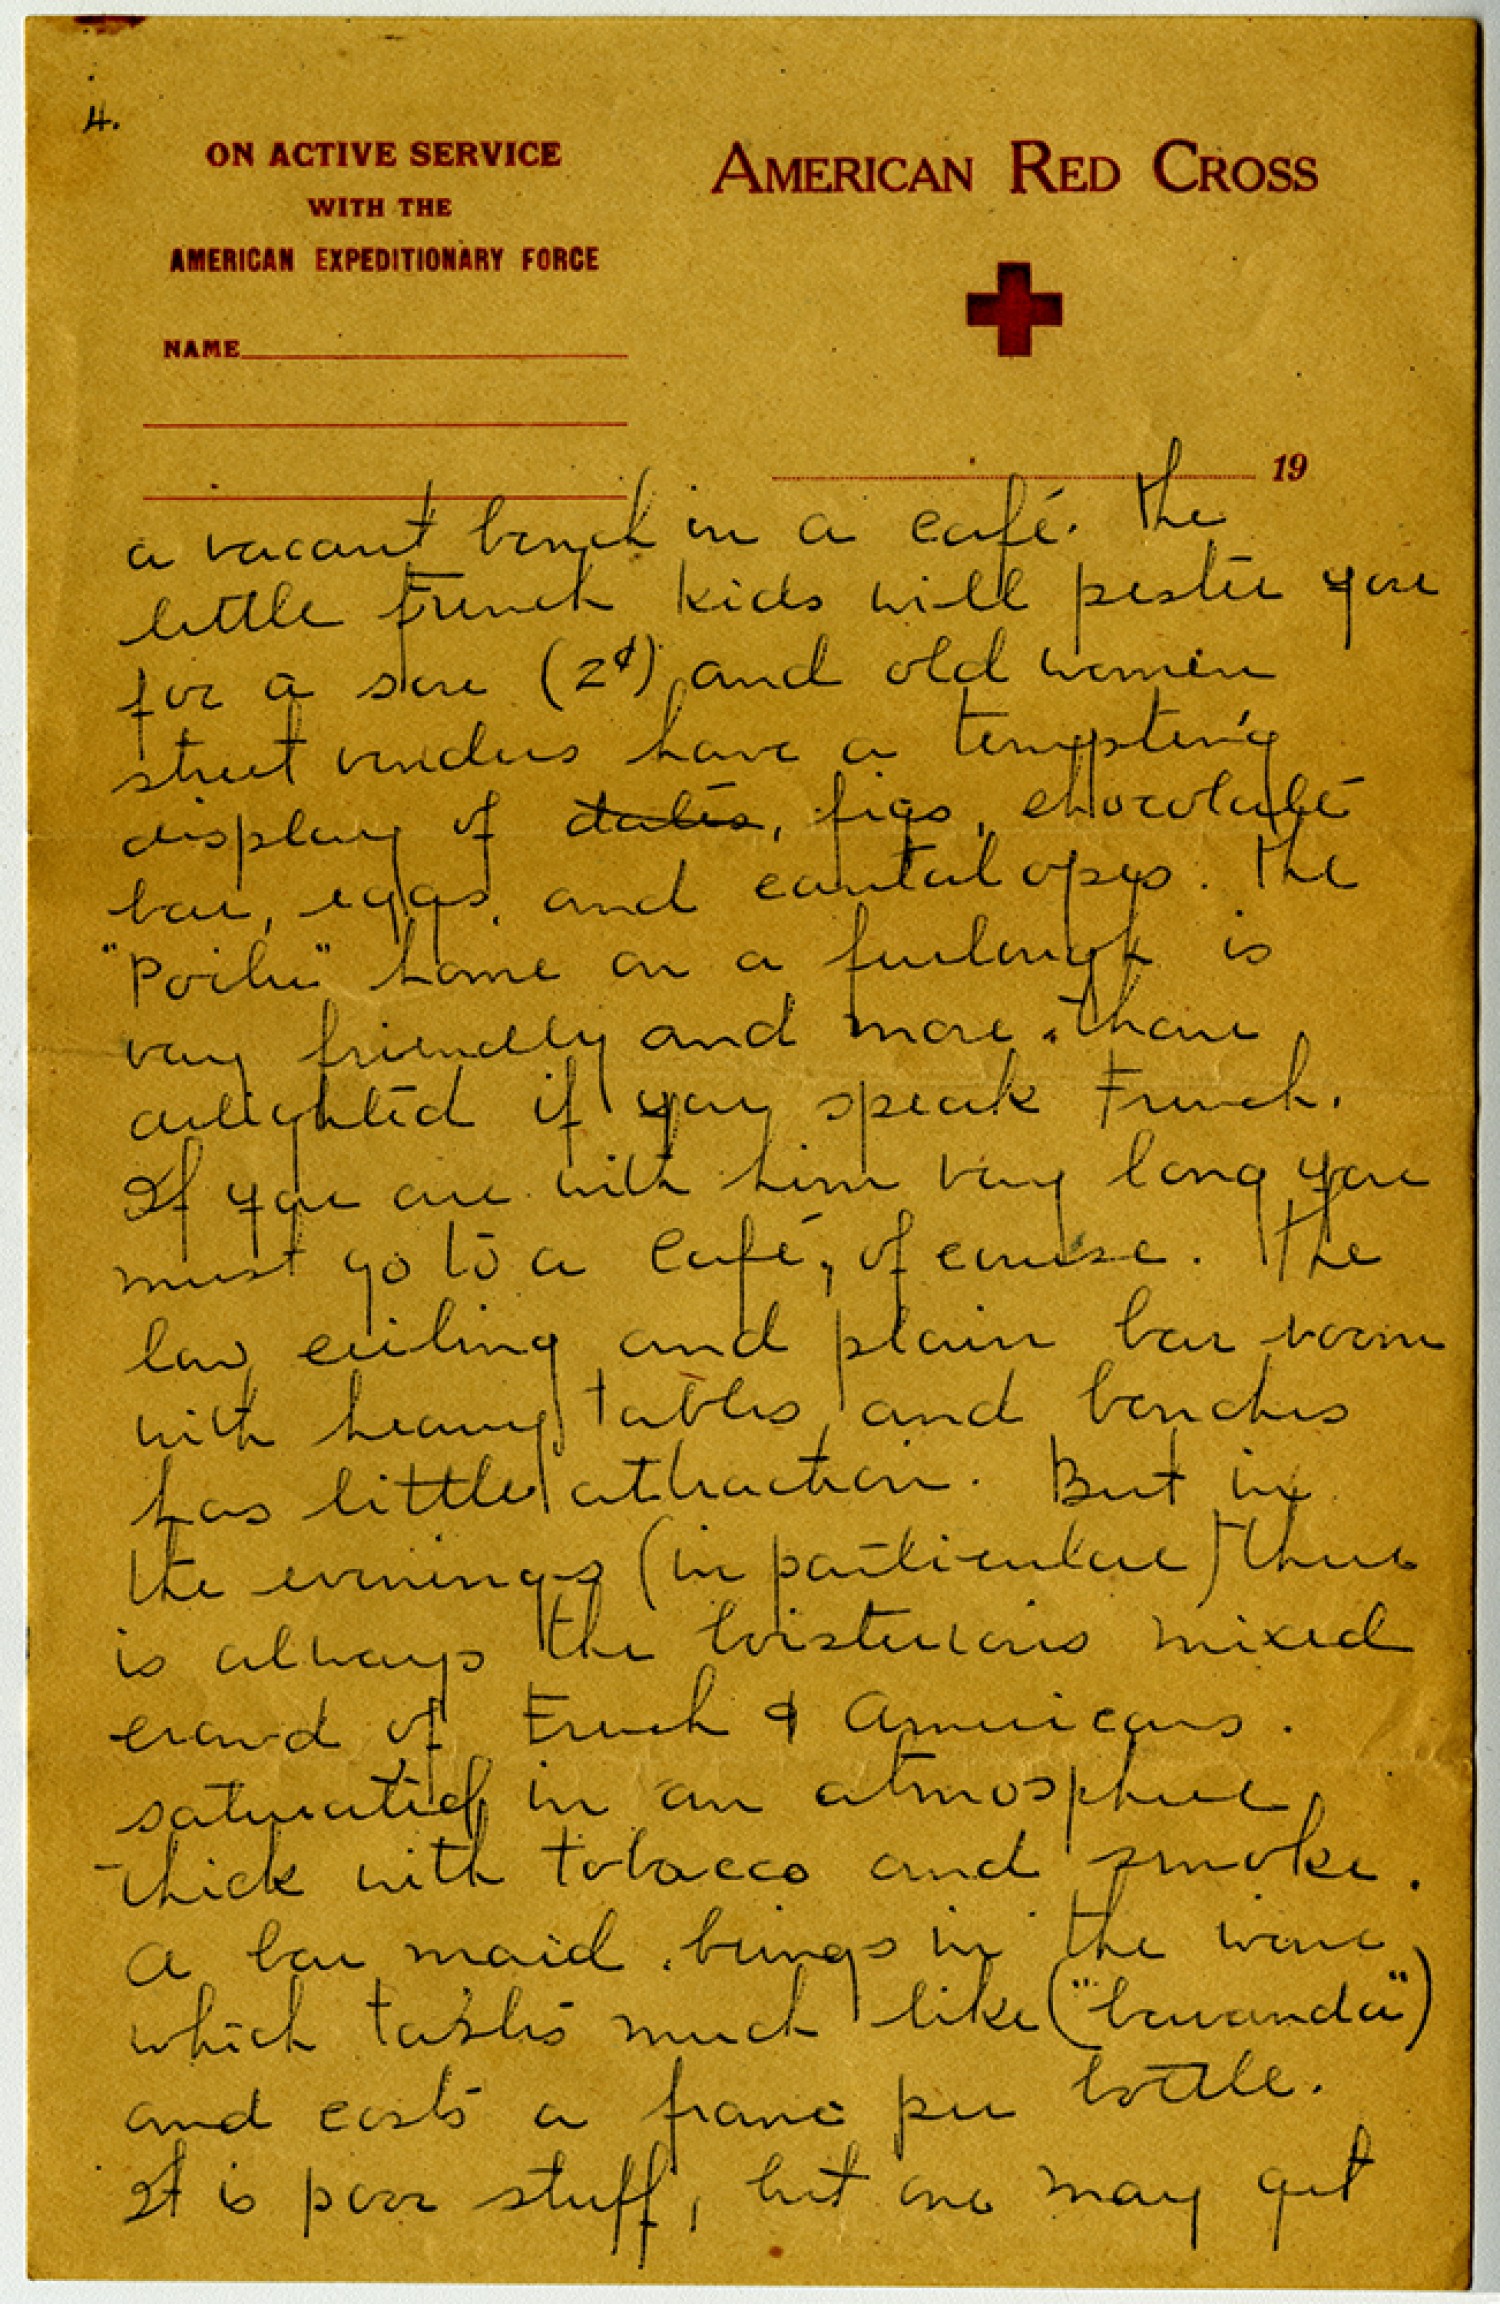 4.
ON ACTIVE SERVICE
WITH THE
AMERICAN EXPEDITIONARY FORCE
NAME
AMERICAN RED CROSS
19
a vacant bench in a café. The
little French kids will pester you
for a sou (2¢) and old women
street venders have a tempting
display of dates, figs, chocolate
bar, eggs, and cantalopes. The
"Poilu" home on a furlough is
very friendly and more than
delighted if you speak French.
If you are with him very long you
must go to a café, of course. The
low ceiling and plain bar room
with heavy tables and benches
has little attraction. But in
the evenings (in particular) there
is always the boisterous mixed
crowd of French & Americans.
saturated in an atmosphere
thick with tobacco and smoke.
A bar maid brings in the wine
which tastes much like ("bavanda")
and costs a franc per bottle.
It is poor stuff, but one may get